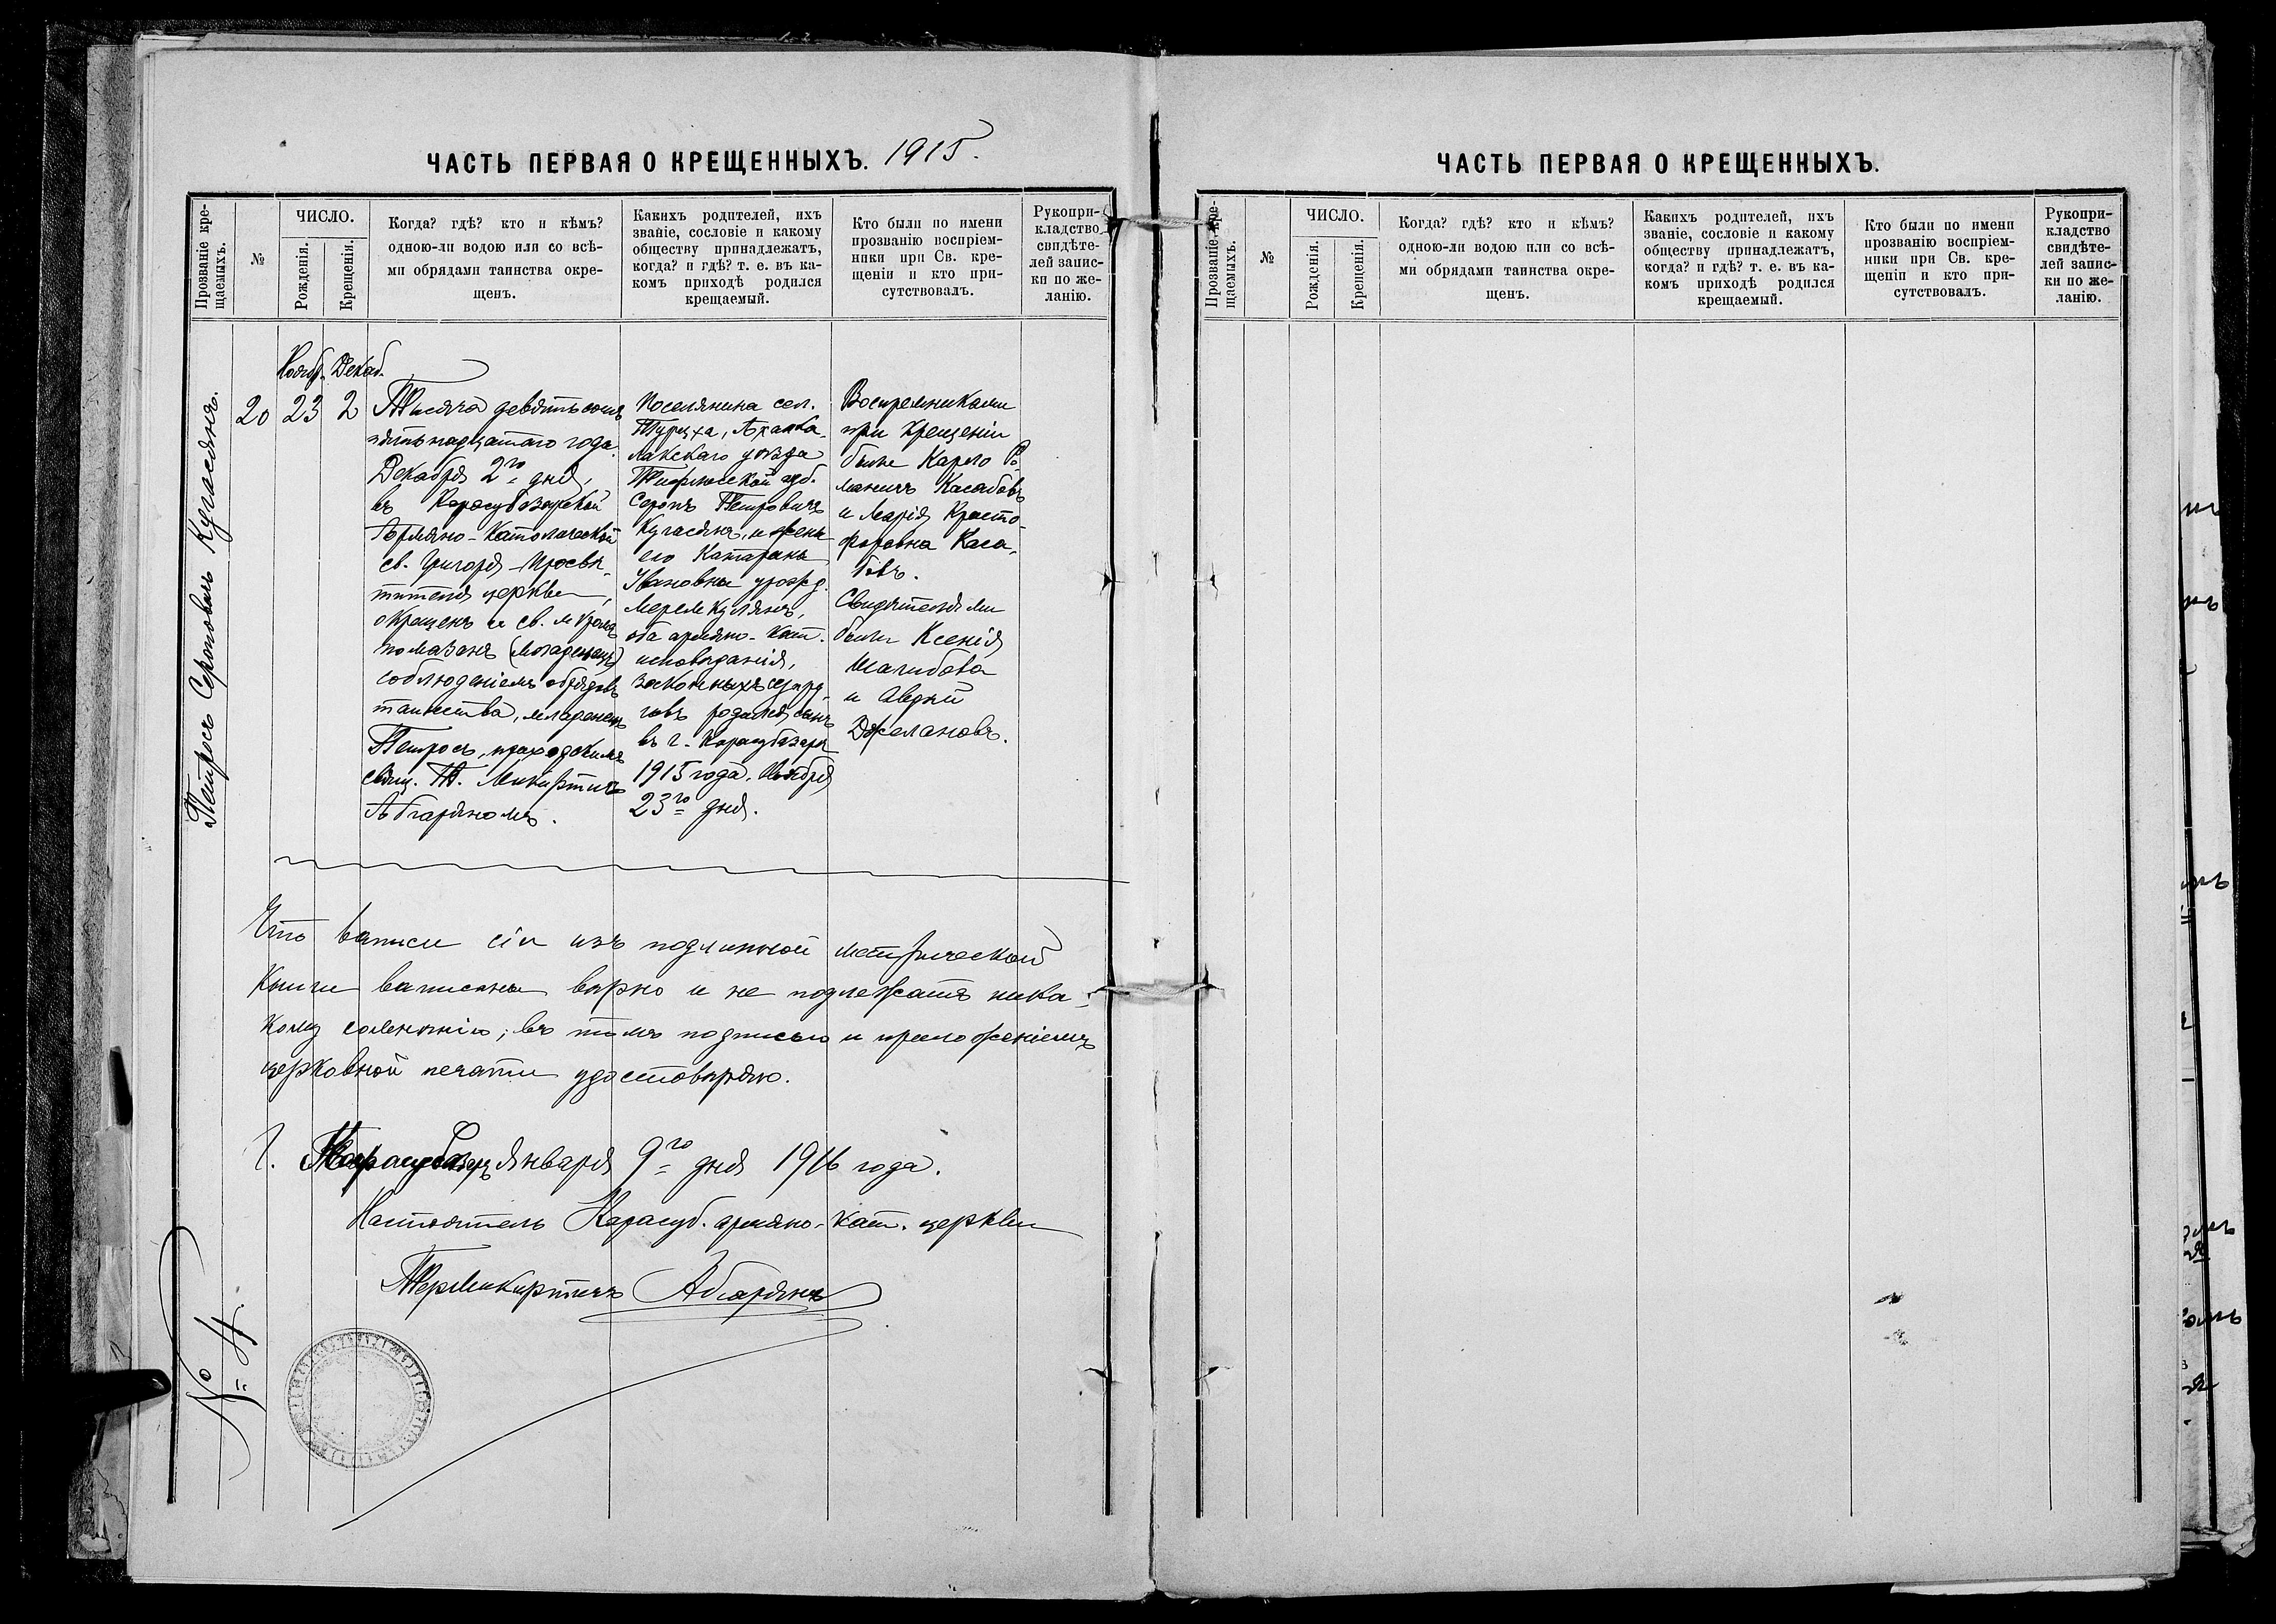 ЧАСТЬ ПЕРВАЯ О КРЕЩЕННЫХЪ. 1915.
Прозваніе кре-
щаемыхъ.
№
ЧИСЛО.
Рожденія.
Крещенія.
Когда? гдѣ? кто и кѣмъ?
одною-ли водою или со всѣ-
ми обрядами таинства окре-
щенъ.
Какихъ родителей, ихъ
званіе, сословіе и какому
обществу принадлежатъ,
когда? и гдѣ? т. е. въ ка-
комъ приходѣ родился
крещаемый.
Кто были по имени
прозванію воспріем-
ники при Св. кре-
щеніи и кто при-
сутствовалъ.
Рукопри-
кладство
свидѣте-
лей запис-
ки по же-
ланію.
Петросъ Сероповичъ Кугасянъ.
20
Нояб.
23
Декаб.
2
Тысяча девятьсотъ
пятьнадцатаго года
Декабря 2го дня,
въ Карасубазарской
Армяно-Католической
св. Григорія Просвѣ-
тителя церкви,
окрещенъ и св. мѵромъ
помазанъ
соблюденіемъ обрядовъ
таинства, младенецъ
Петросъ, приходскимъ
свящ. Т. Микиртичъ
Абгаряномъ.
Поселянина сел.
Турцха, Ахалка-
лакскаго уѣзда
Тифлисской губ.
Серопъ Петровичъ
Кугасянъ, и жены
его Катарины
Ивановны урожд.
Меремкулянъ,
оба армяно-кат.
исповѣданія,
законныхъ супру-
говъ родился сынъ
въ г. Карасубазарѣ
1915 года. Ноября
23го дня.
Воспремниками
при крещеніи
были Карло Ро-
мановъ Касабовъ
и Марія Христо-
форовна Каса-
бовъ.
Свидѣтелями
были Ксенія
Шагибова
и Авдѣй
Джелановъ.
Что записи сіи изъ подлинной метрической
книги записаны вѣрно и не подлежатъ ника-
кому сомненію; въ томъ подписью и приложеніемъ
церковной печати удостовѣряю.
г. Карасубазаръ Января 9го дня 1916 года.
Настоятель Карасуб. армяно-кат. церкви
ТерМикиртичъ Абгарянъ
№ 4.
ЧАСТЬ ПЕРВАЯ О КРЕЩЕННЫХЪ.
Прозваніе кре-
щаемыхъ.
№
ЧИСЛО.
Рожденія.
Крещенія.
Когда? гдѣ? кто и кѣмъ?
одною-ли водою или со всѣ-
ми обрядами таинства окре-
щенъ.
Какихъ родителей, ихъ
званіе, сословіе и какому
обществу принадлежатъ,
когда? и гдѣ? т. е. въ ка-
комъ приходѣ родился
крещаемый.
Кто были по имени
прозванію воспріем-
ники при Св. кре-
щеніи и кто при-
сутствовалъ.
Рукопри-
кладство
свидѣте-
лей запис-
ки по же-
ланію.